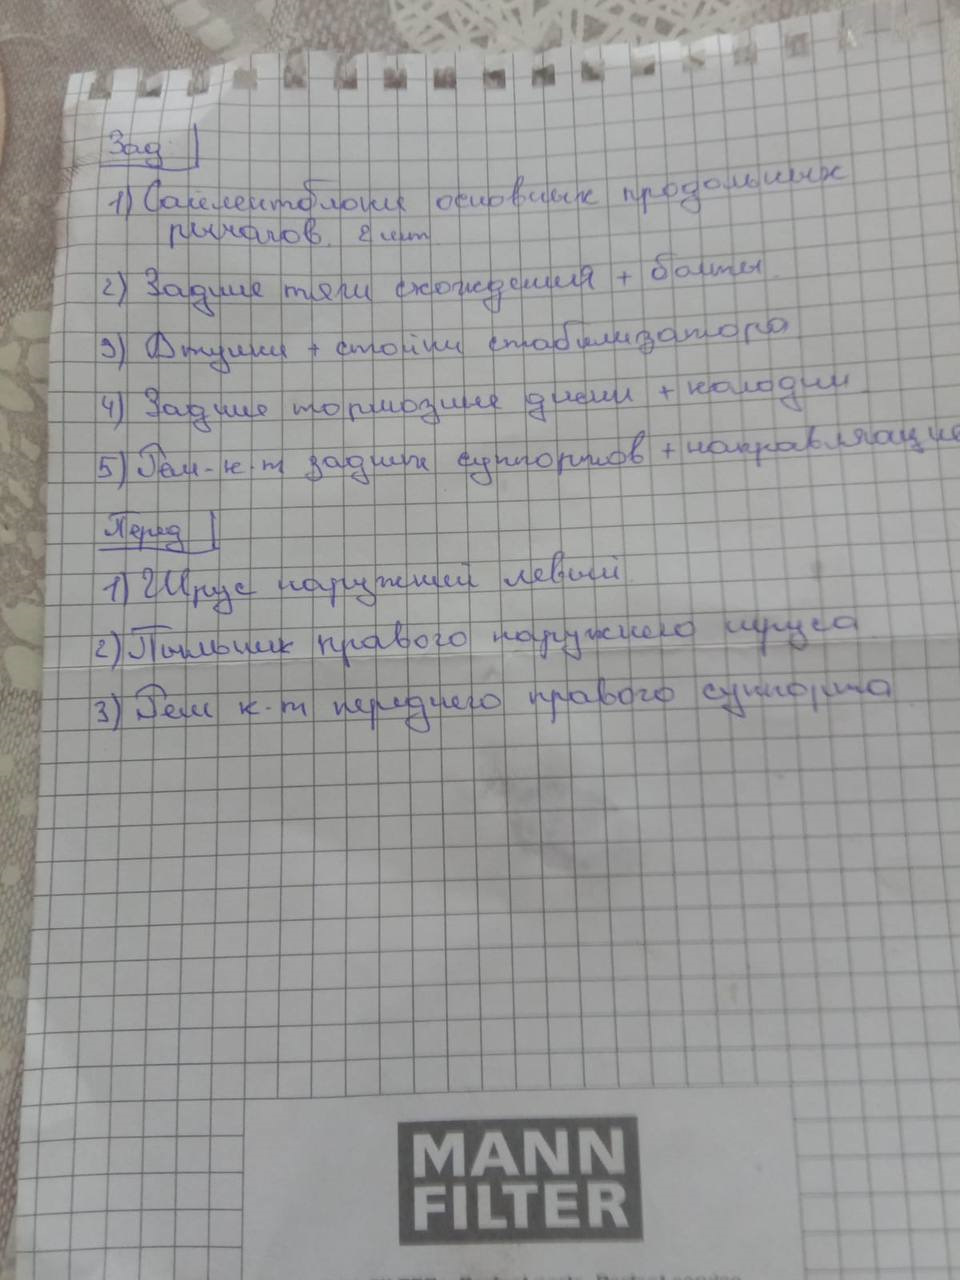 Зад
1) Сайлентблоки основных продольных
рычагов. 2 шт
2) Задние тяги схождения + болты
3) Втулки + стойки стабилизатора
4) Задние тормозные диски + колодки
5) Рем-к-т задних суппортов + направляющие
Перед
1) Шрус наружний левый
2) Пыльник правого наружнего шруса
3) Рем к-т переднего правого суппорта
MANN
FILTER